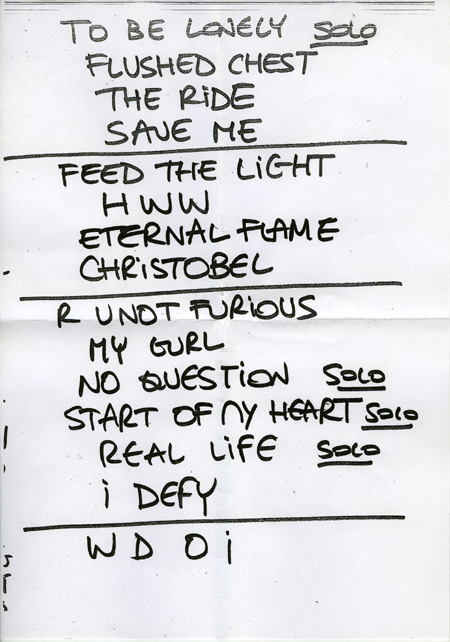 TO BE LONELY SOLO
FLUSHED CHEST
THE RiDE
SAVE ME
FEED THE LiGHT
HWW
ETERNAL FLAME
CHRiSTOBEL
R UNOT FURiOUS
MY GURL
NO QUESTiON SOLO
START OF MY HEART SOLO
REAL LiFE SOLO
i DEFY
W D O i